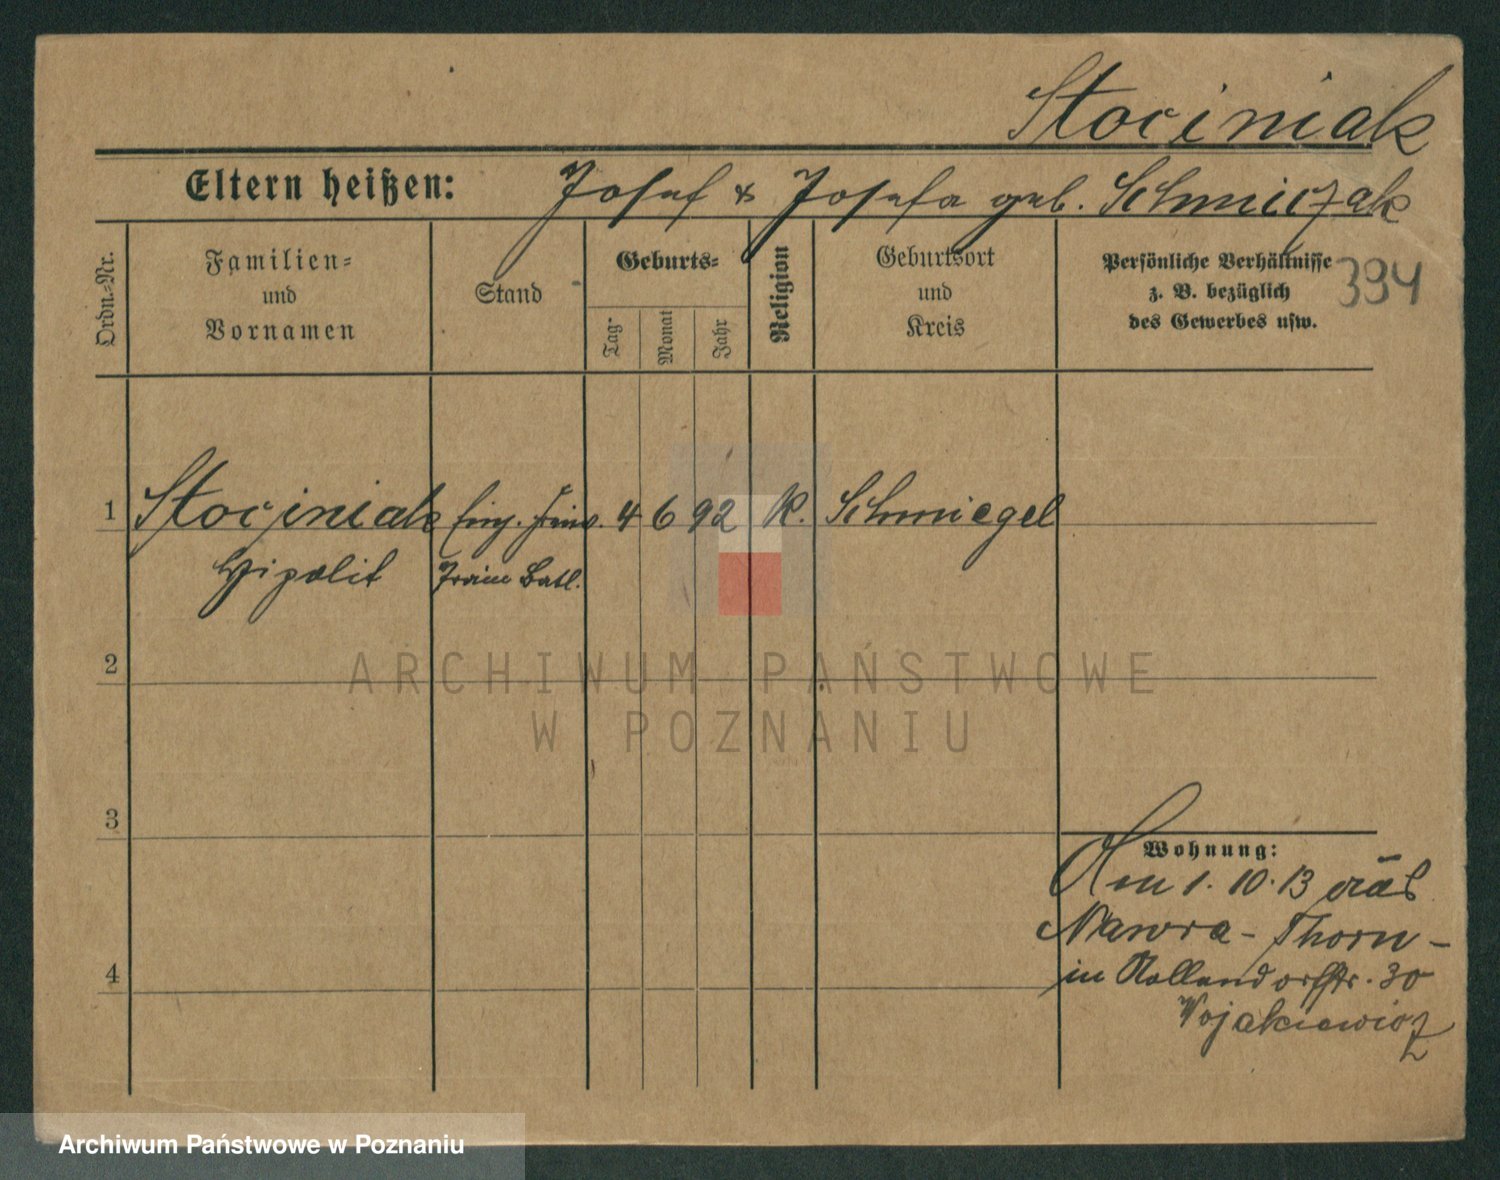 Stociniak
Eltern heißen: Josef & Josefa geb. Schmiczak
Ordn.-Nr.
Familien-
und
Vornamen
Stand
Geburts-
Tag-
Monat
Jahr
Religion
Geburtsort
und
Kreis
Persönliche Verhältnisse
z. B. bezüglich
des Gewerbes usw.
394
1 Stociniak Einj. Freiw. 4 6 92 K. Schmiegel
Hipolit Train Batl.
2
ARCHIWUM PAŃSTWOWE
W POZNANIU
3
Wohnung:
Am 1. 10. 13
Nawra - Thorn -
in Nollendorfstr. 30
Wojakiewicz
4
Archiwum Państwowe w Poznaniu